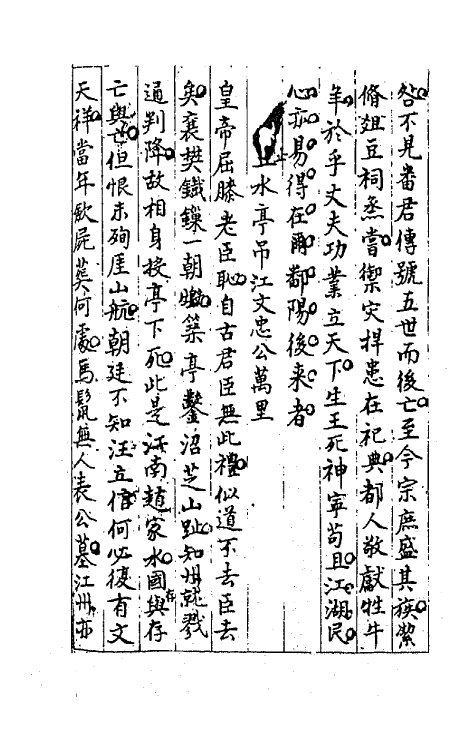 咎不見番君傳號五世而後亡至今宗庶盛其族紫
脩俎豆祠烝嘗禦灾捍患在祀典都人敬獻牲牛
羊於乎丈夫功業立天下生王死神寧苟且江湖民
心亦易得在爾鄱陽後来者
止水亭吊江文忠公萬里
皇帝屈膝老臣恥自古君臣無此禮似道不去臣去
矣襄樊鐵鏁一朝築亭鑿沼芝山趾知州就戮
通判降故相身投亭下死此是江南趙家水國與存
亡與亡但恨未殉厓山航朝廷不知汪立信何必復有文
天祥當年歛屍𦵏何處馬鬛無人表公墓江州亦